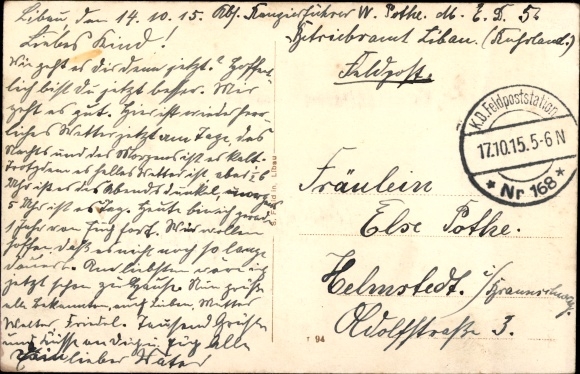 Libau den 14.10.15. Abs. Rangierführer W. Pothe. M. E. D. 5b
Betriebsamt Libau. (Kurland.)
Feldpost.
Liebes Kind!
Wie geht es dir denn jetzt? Hoffent
lich bist du jetzt besser. Mir
geht es gut. Hier ist wunderherr
liches Wetter jetzt am Tage, des
Nachts und des Morgens ist es kalt.
Trotzdem es helles Wetter ist, aber 6
Uhr ist es des Abends dunkel,
5 Uhr ist es Tag. Heute bin ich
1 Jahr von Euch fort. Wir wollen
hoffen, daß es nicht noch so lange
dauert. Am liebsten wäre ich
jetzt schon zu Hause. Nun grüße
alle Bekannten, auch Lieben, Mutter
Walter, Friedel. Tausend Grüße
und Küsse an dich, Euch Alle
Dein lieber Vater
K.D. Feldpoststation
17.10.15. 5-6 N
* Nr 168 *
Fräulein
Else Pothe.
Helmstedt. i/Braunschweig.
Adolfstraße 3.
in Libau
94